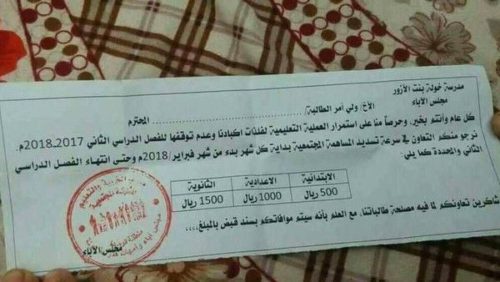 مدرسة خولة بنت الأزور
مجلس الأباء
الأخ/ ولي أمر الطالبة/ المحترم
كل عام وأنتم بخير, وحرصاً منا على استمرار العملية التعليمية لفلذات اكبادنا وعدم توقفها للفصل الدراسي الثاني 2017ـ2018م.
نرجو منكم التعاون في سرعة تسديد المساهمة المجتمعية بداية كل شهر بدء من شهر فبراير/2018م وحتى انتهاء الفصل الدراسي
الثاني والمحددة كما يلي:
الابتدائية الاعدادية الثانوية
500 ريال 1000 ريال 1500 ريال
شاكرين تعاونكم لما فيه مصلحة طالباتنا, مع العلم بأنه سيتم موافاتكم بسند قبض بالمبلغ,,,,
مجلس الأباء